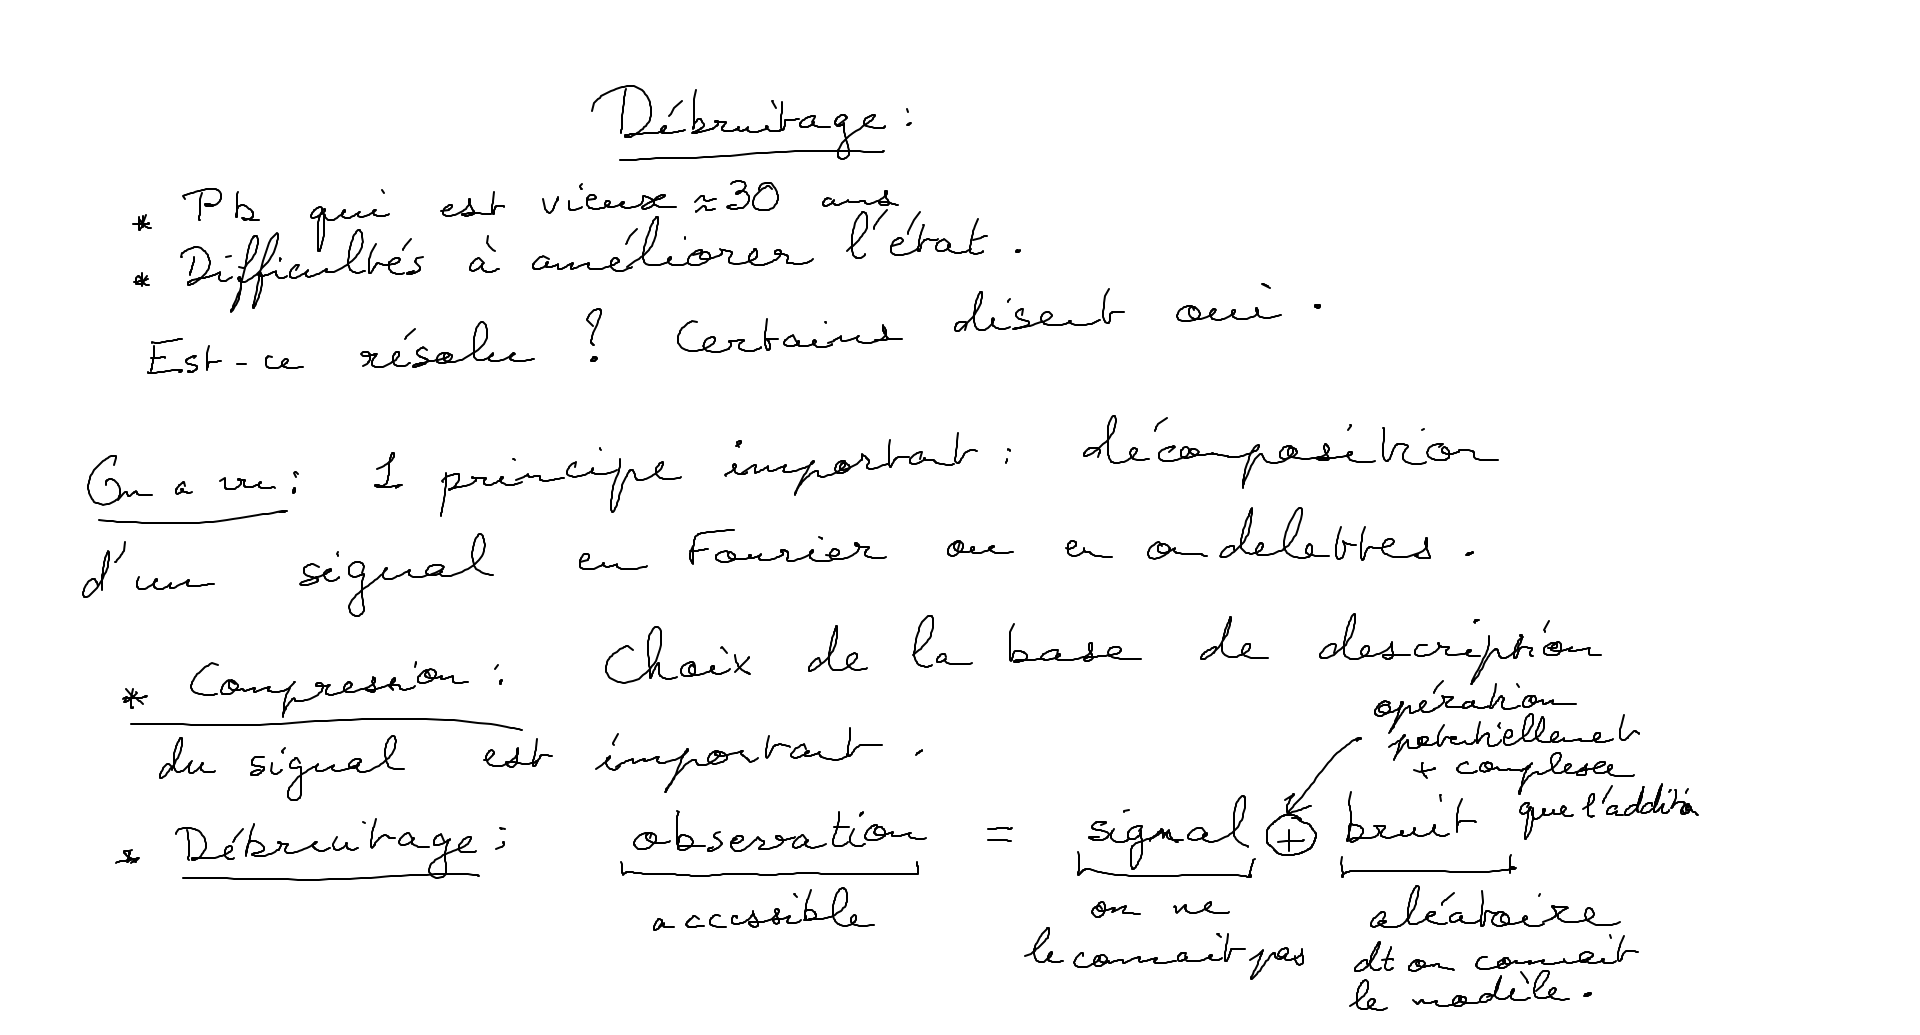 Débruitage :
* Pb qui est vieux ≈ 30 ans
* Difficultés à améliorer l'état.
Est-ce résolu ? Certains disent oui.
On a vu : 1 principe important : décomposition
d'un signal en Fourier ou en ondelettes.
* Compression : Choix de la base de description
du signal est important.
opération
potentiellement
+ complexe
que l'addition
* Débruitage : observation = signal ⊕ bruit
accessible
on ne
le connait pas
aléatoire
dt on connait
le modèle.